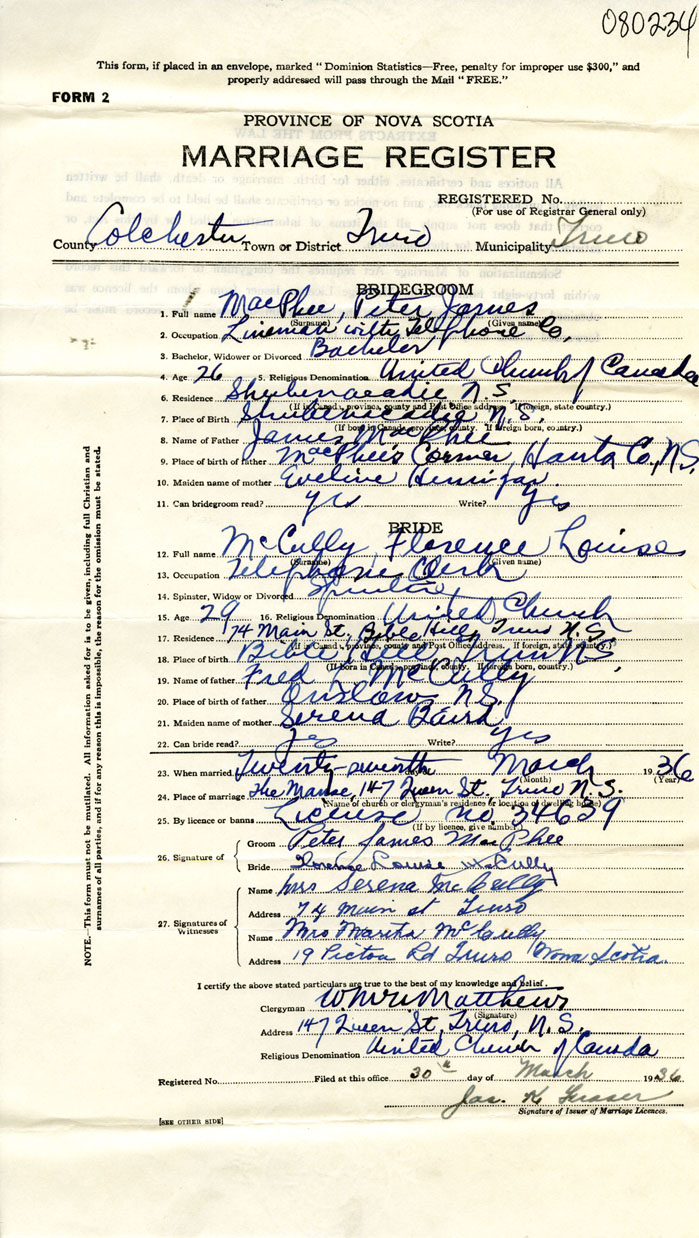 080234
This form, if placed in an envelope, marked "Dominion Statistics—Free, penalty for improper use $300," and
properly addressed will pass through the Mail "FREE."
FORM 2
PROVINCE OF NOVA SCOTIA
MARRIAGE REGISTER
REGISTERED No.
(For use of Registrar General only)
County Colchester Town or District Truro Municipality Truro
BRIDEGROOM
1. Full name MacPhee, Peter James
(Surname) (Given name)
2. Occupation Lineman with Telephone Co,
3. Bachelor, Widower or Divorced Bachelor
4. Age 26 5. Religious Denomination United Church of Canada
6. Residence Shubenacadie N.S.
(If in Canada, province, county and Post Office address. If foreign, state country.)
7. Place of Birth Shubenacadie N.S.
(If born in Canada, province, county. If foreign born, country.)
8. Name of Father James MacPhee
9. Place of birth of father MacPhee's Corner, Hants Co., N.S.
10. Maiden name of mother Eveline
11. Can bridegroom read? yes Write? Yes
BRIDE
12. Full name McCully, Florence Louise
(Surname) (Given name)
13. Occupation Telephone Clerk
14. Spinster, Widow or Divorced Spinster
15. Age 29 16. Religious Denomination United Church
17. Residence 74 Main St, Bible Hill, Truro N.S.
(If in Canada, province, county and Post Office Address. If foreign, state country.)
18. Place of birth Bible Hill, Truro N.S.
(If born in Canada, province, county. If foreign born, country.)
19. Name of father Fred L McCully
20. Place of birth of father Onslow N.S.
21. Maiden name of mother Serena Baird
22. Can bride read? yes Write? yes
23. When married Twenty-seventh March 1936
(Month) (Year)
24. Place of marriage The Manse, 147 Queen St. Truro N.S.
(Name of church or clergyman's residence or location of dwelling house)
25. By licence or banns License no 34639
(If by licence, give number)
26. Signature of Groom Peter James MacPhee
Bride Florence Louise McCully
27. Signatures of Witnesses
Name Mrs Serena McCully
Address 74 Main st Truro
Name Mrs Martha McCully
Address 19 Pictou Rd Truro Nova Scotia.
I certify the above stated particulars are true to the best of my knowledge and belief.
Clergyman Matthews
(Signature)
Address 147 Queen St, Truro, N.S.
Religious Denomination United Church of Canada
Registered No. Filed at this office 30th day of March 1936
Jas. K Fraser
Signature of Issuer of Marriage Licences.
[SEE OTHER SIDE]
NOTE.—This form must not be mutilated. All information asked for is to be given, including full Christian and
surnames of all parties, and if for any reason this is impossible, the reason for the omission must be stated.